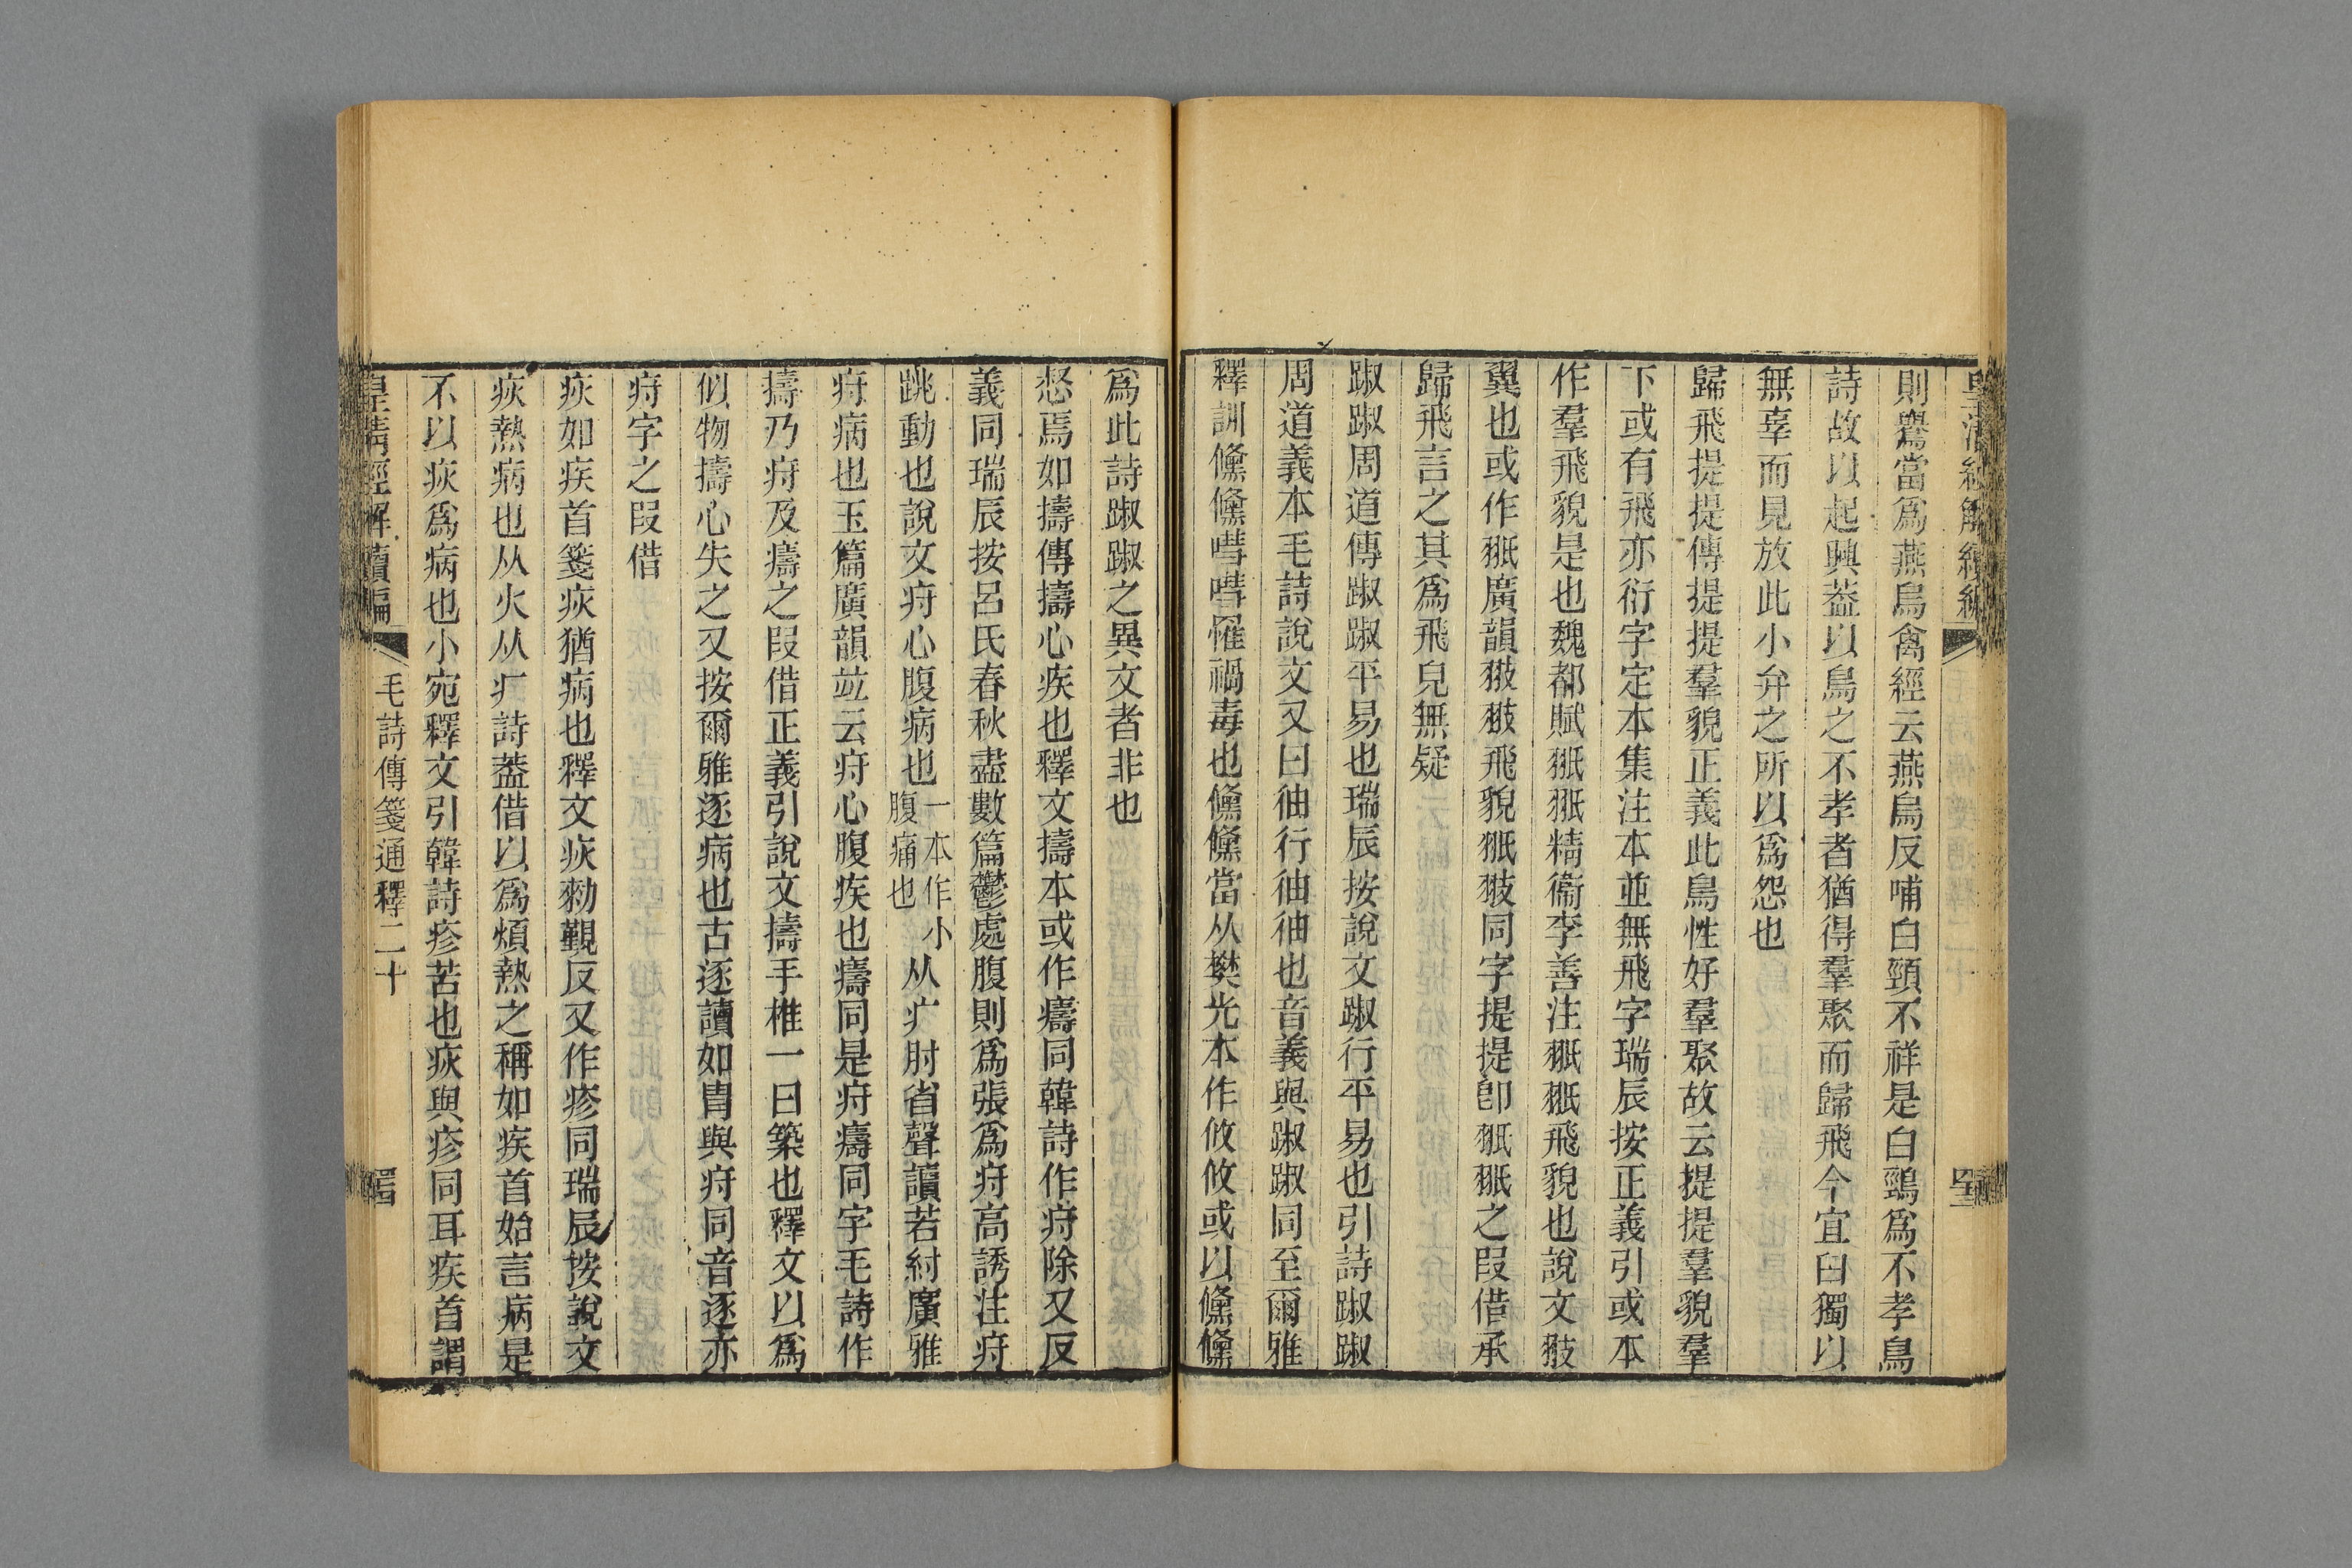 皇清經解續編
則鸒當爲燕烏禽經云燕烏反哺白頸不祥是白鵶爲不孝鳥
詩故以起興葢以鳥之不孝者猶得羣聚而歸飛今宜臼獨以
無辜而見放此小弁之所以爲怨也
歸飛提提傳提提羣貌正義此鳥性好羣聚故云提提羣貌羣
下或有飛亦衍字定本集注本並無飛字瑞辰按正義引或本
作羣飛貌是也魏都賦翐翐精衞李善注翐翐飛貌也說文翄
翼也或作翐廣韻翄翄飛貌翐翄同字提提卽翐翐之叚借承
歸飛言之其爲飛皃無疑
踧踧周道傳踧踧平易也瑞辰按說文踧行平易也引詩踧踧
周道義本毛詩說文又曰㣙行㣙㣙也音義與踧踧同至爾雅
釋訓儵儵嘒嘒罹禍毒也儵儵當从樊光本作攸攸或以儵儵
爲此詩踧踧之異文者非也
惄焉如擣傳擣心疾也釋文擣本或作㿒同韓詩作疛除又反
義同瑞辰按呂氏春秋盡數篇鬱處腹則爲張爲疛高誘注疛
跳動也說文疛心腹病也一本作小腹痛也从疒肘省聲讀若紂廣雅
疛病也玉篇廣韻竝云疛心腹疾也㿒同是疛㿒同字毛詩作
擣乃疛及㿒之叚借正義引說文擣手椎一曰築也釋文以爲
似物擣心失之又按爾雅逐病也古逐讀如胄與疛同音逐亦
疛字之叚借
疢如疾首箋疢猶病也釋文疢勑覲反又作疹同瑞辰按說文
疢熱病也从火从疒詩葢借以爲煩熱之稱如疾首始言病是
不以疢爲病也小宛釋文引韓詩疹苦也疢與疹同耳疾首謂
皇淸經解續編
毛詩傳箋通釋二十